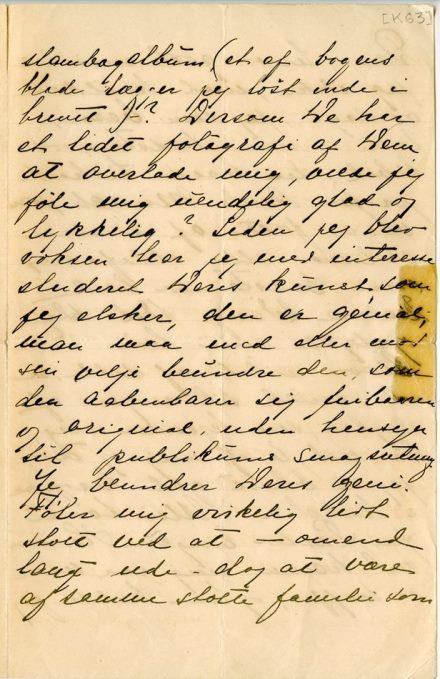 [K63]
stambogalbum (et af bogens
blade lægger jeg löst inde i
brevet)-? Dersom De har
et lidet fotografi af Dem
at overlade mig, vilde jeg
föle mig uendelig glad og
lykkelig? Siden jeg blev
voksen har jeg med interesse
studeret Deres kunst, som
jeg elsker, den er genial,
man maa med eller mod
sin vilje beundre den, som
den aabenbarer sig
og original, uden hensyn
til publikums smagsretning
Jeg beundrer Deres geni.
Föler mig virkelig lidt
stolt ved at – omend
langt ude – dog at være
af samme stolte familie som